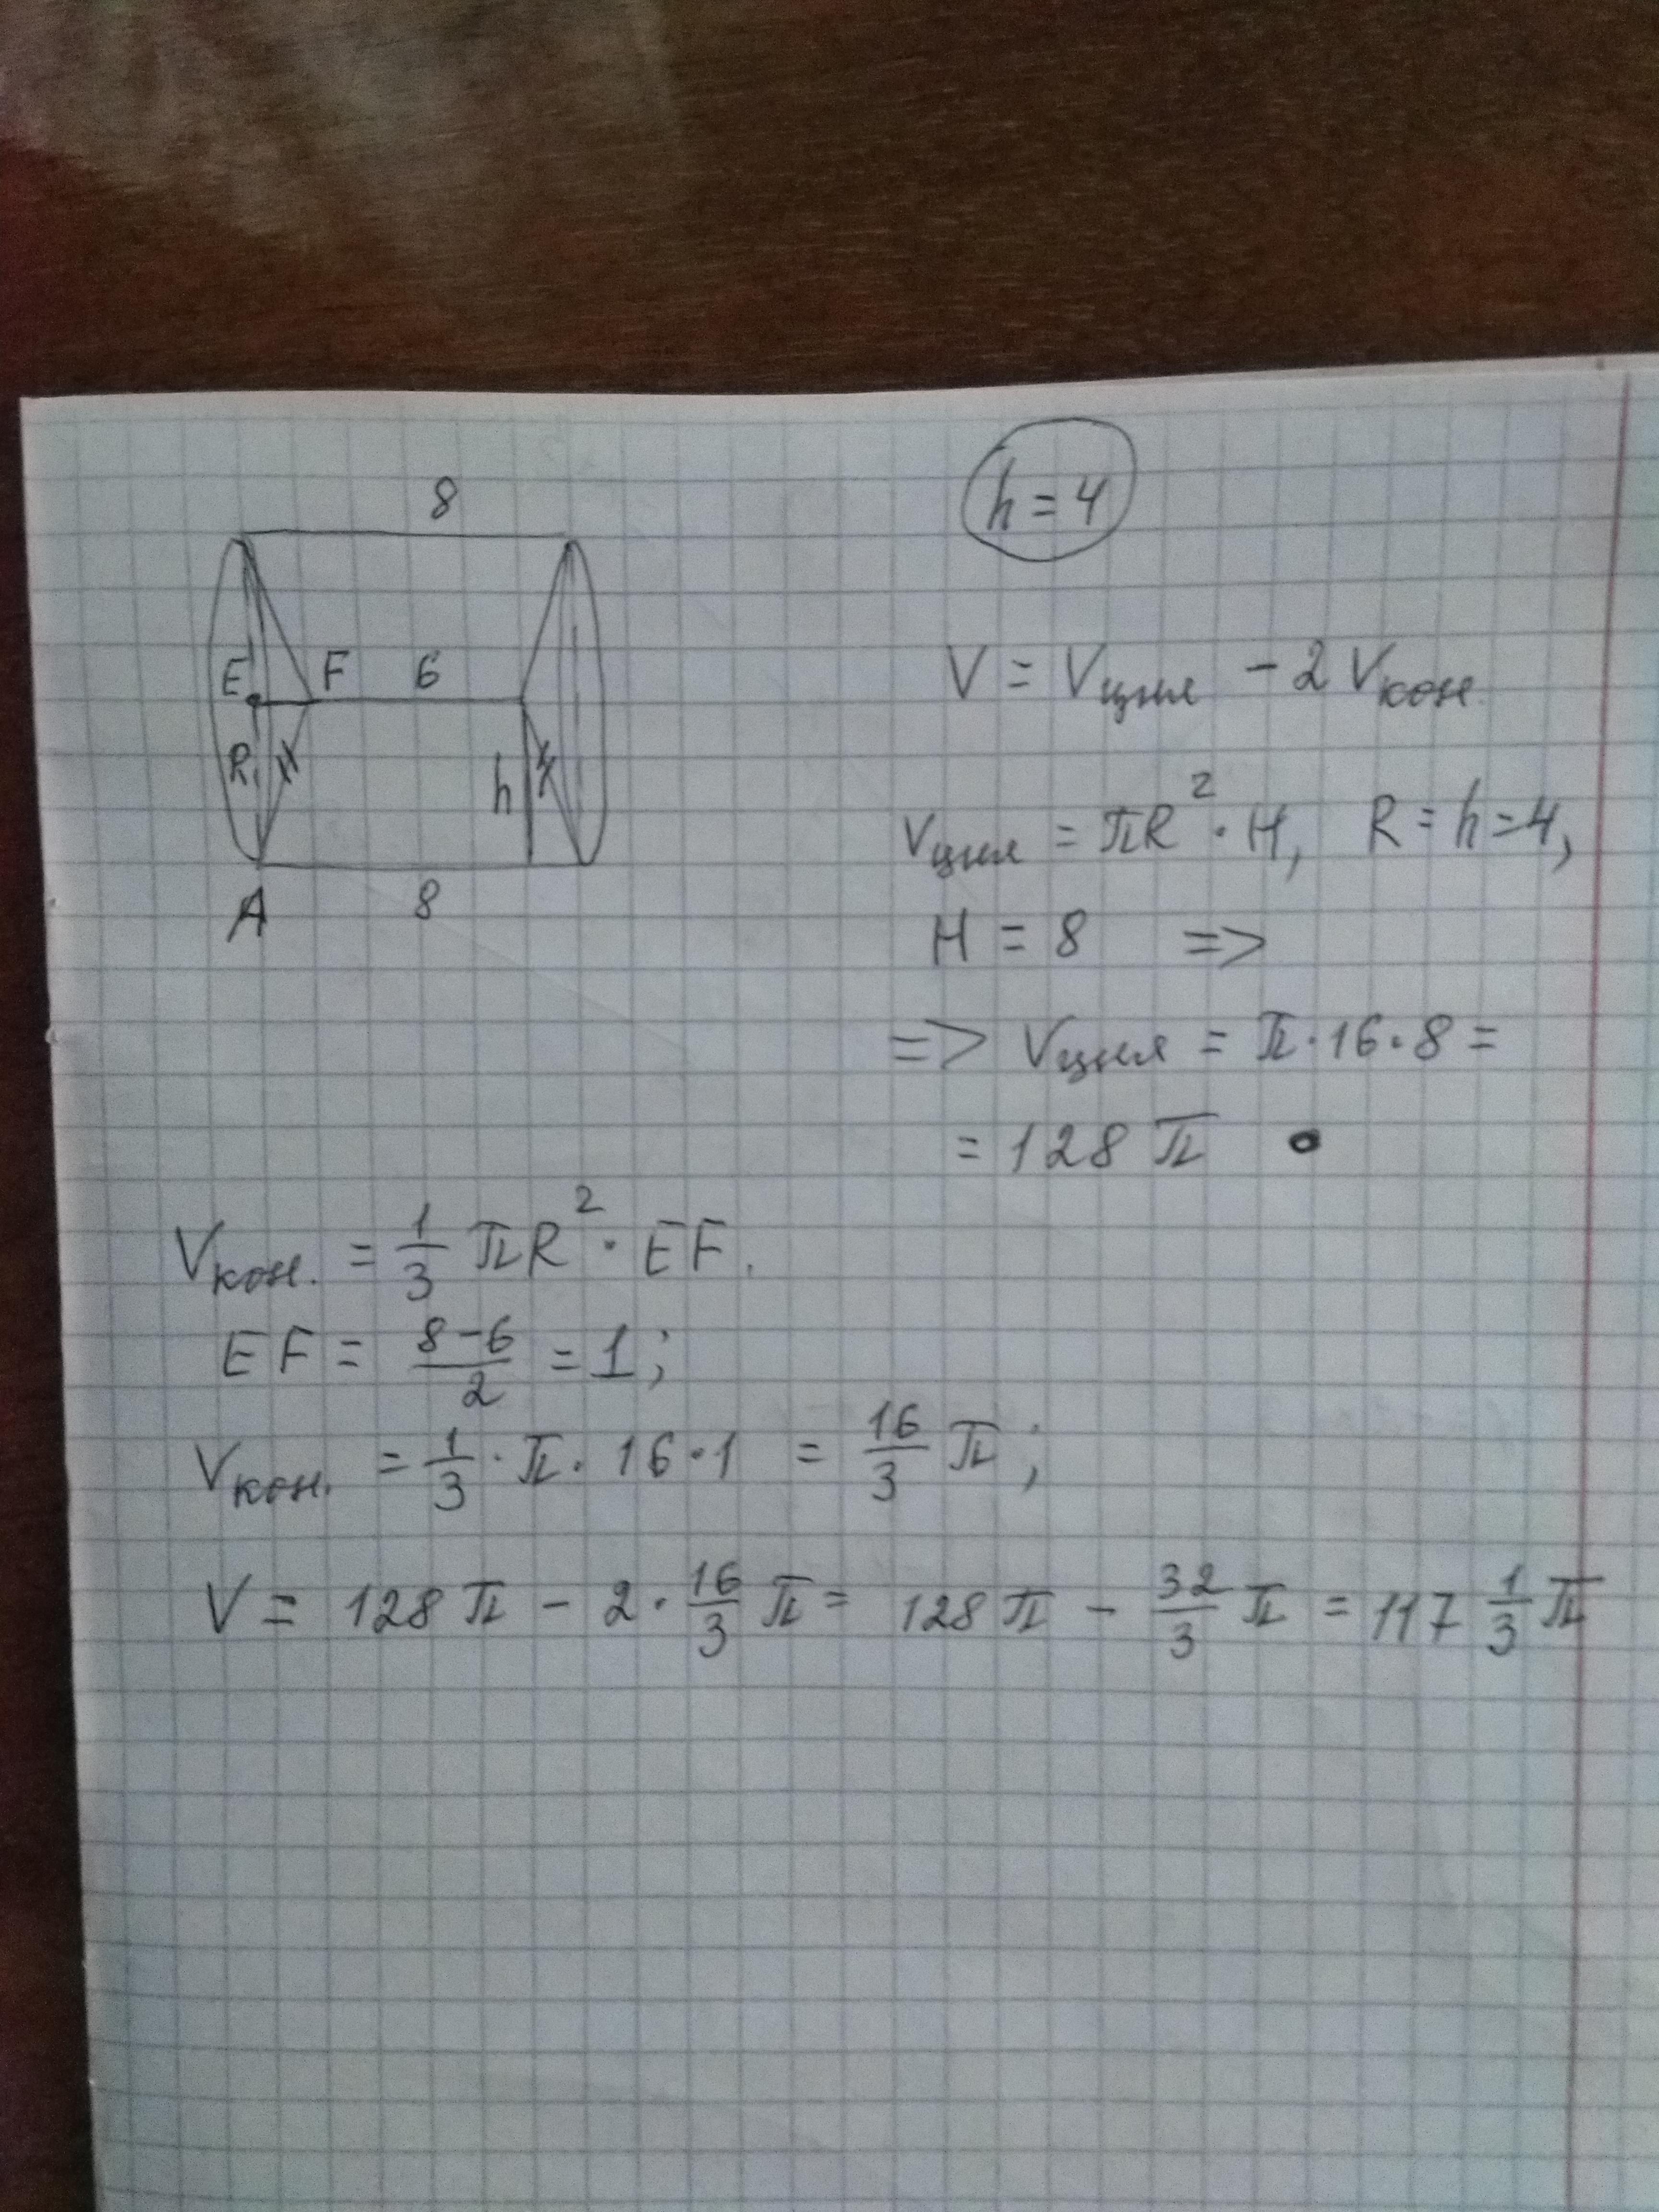 8
h = 4
E F 6
R
h
A 8
V = Vцил - 2 Vкон.
Vцил = πR² · H, R = h = 4,
H = 8 =>
=> Vцил = π · 16 · 8 =
= 128 π
Vкон. = 1/3 πR² · EF.
EF = (8-6)/2 = 1;
Vкон. = 1/3 · π · 16 · 1 = 16/3 π;
V = 128 π - 2 · 16/3 π = 128 π - 32/3 π = 117 1/3 π